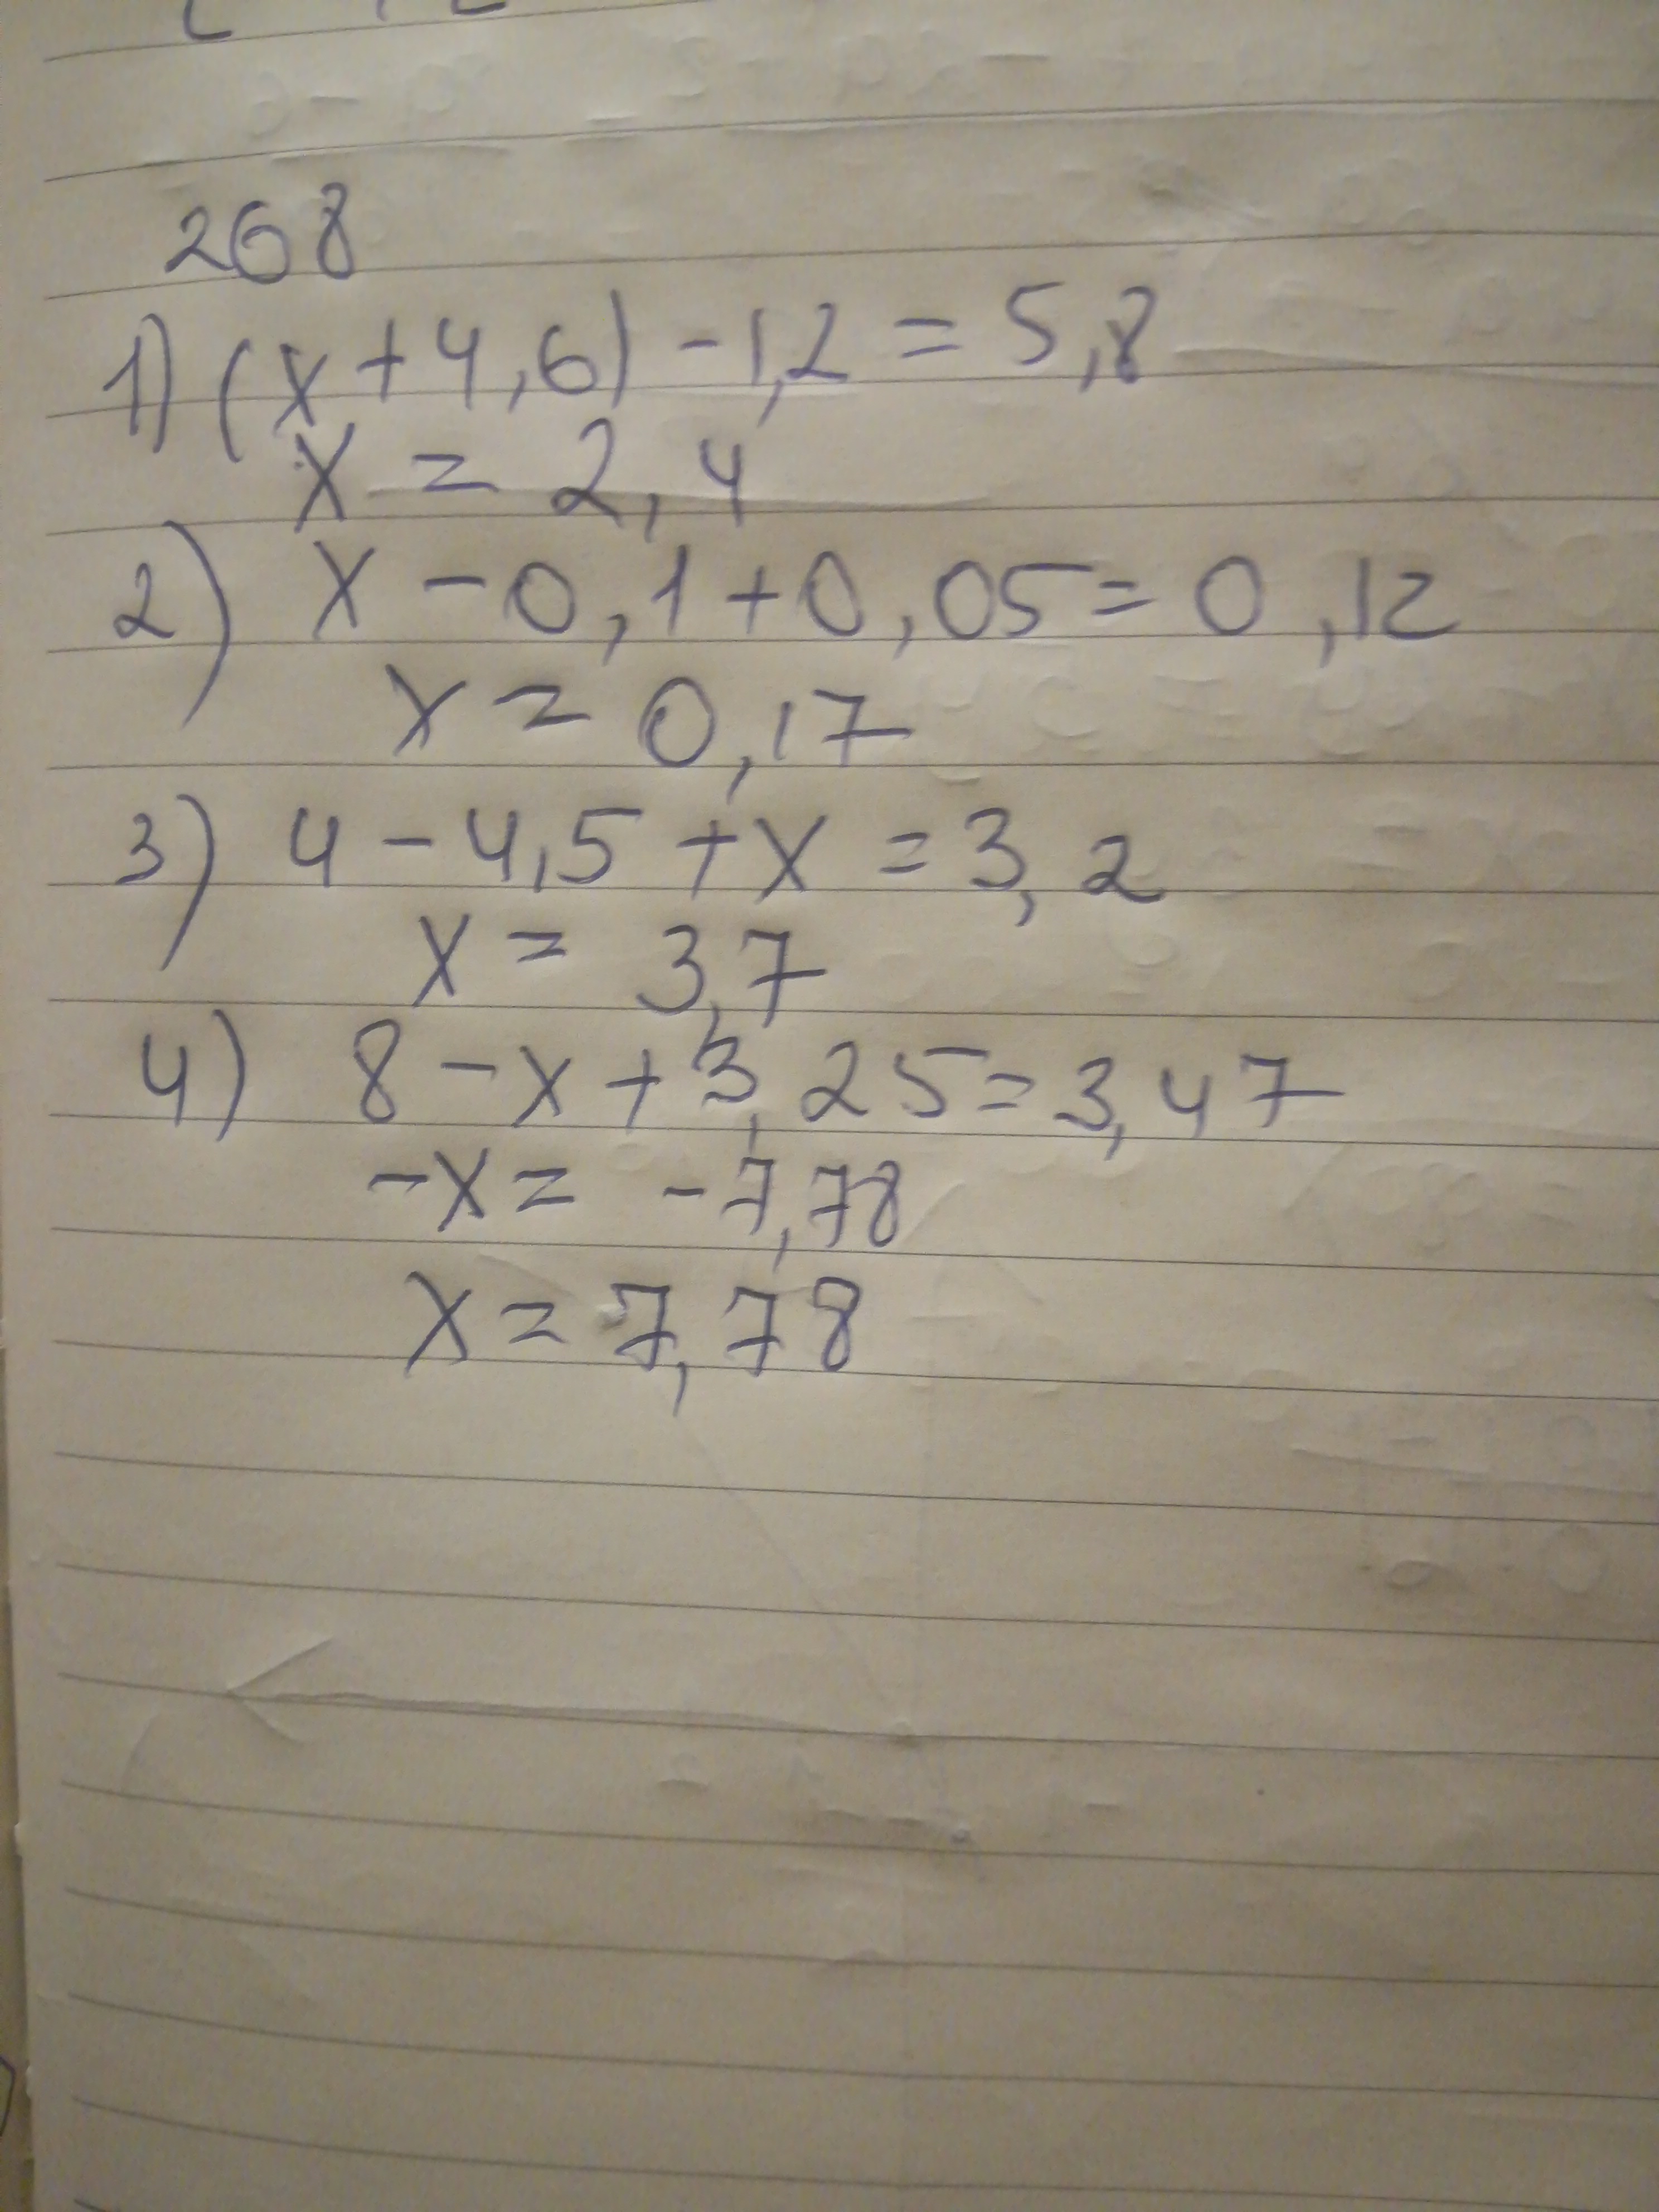 268
1) (x+4,6) - 1,2 = 5,8
x = 2,4
2) x - 0,1 + 0,05 = 0,12
x = 0,17
3) 4 - 4,5 + x = 3,2
x = 3,7
4) 8 - x + 3,25 = 3,47
-x = -7,78
x = 7,78